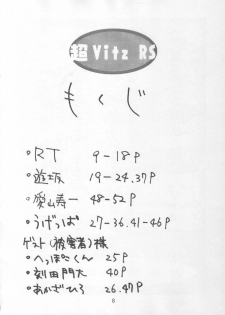 超Vitz RS
もくじ
・RT 9-18P
・遊坂 19-24.37P
・愛山寿一 48-52P
・うげっぱ 27-36.41-46P
ゲスト(被害者)様
・へっぽこくん 25P
・刻田門大 40P
・あかざひろ 26.47P
8